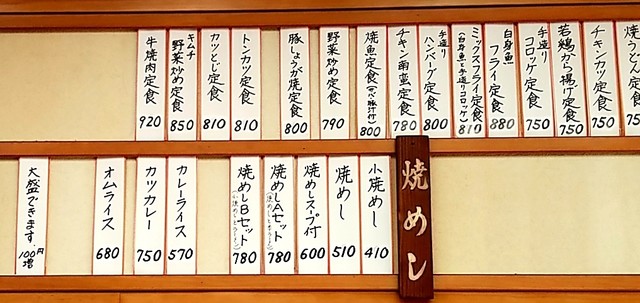 焼うどん定食 75
チキンカツ定食 750
若鶏から揚げ定食 750
手造りコロッケ定食 750
白身魚フライ定食 880
ミックスフライ定食(白身魚と手造りコロッケ) 810
手造りハンバーグ定食 800
チキン南蛮定食 780
焼魚定食 800
野菜炒め定食 790
豚しょうが焼定食 800
トンカツ定食 810
カツとじ定食 810
キムチ野菜炒め定食 850
牛焼肉定食 920
焼めし
小焼めし 410
焼めし 510
焼めしスープ付 600
焼めしAセット 780
焼めしBセット 780
カレーライス 570
カツカレー 750
オムライス 680
大盛できます。100円増